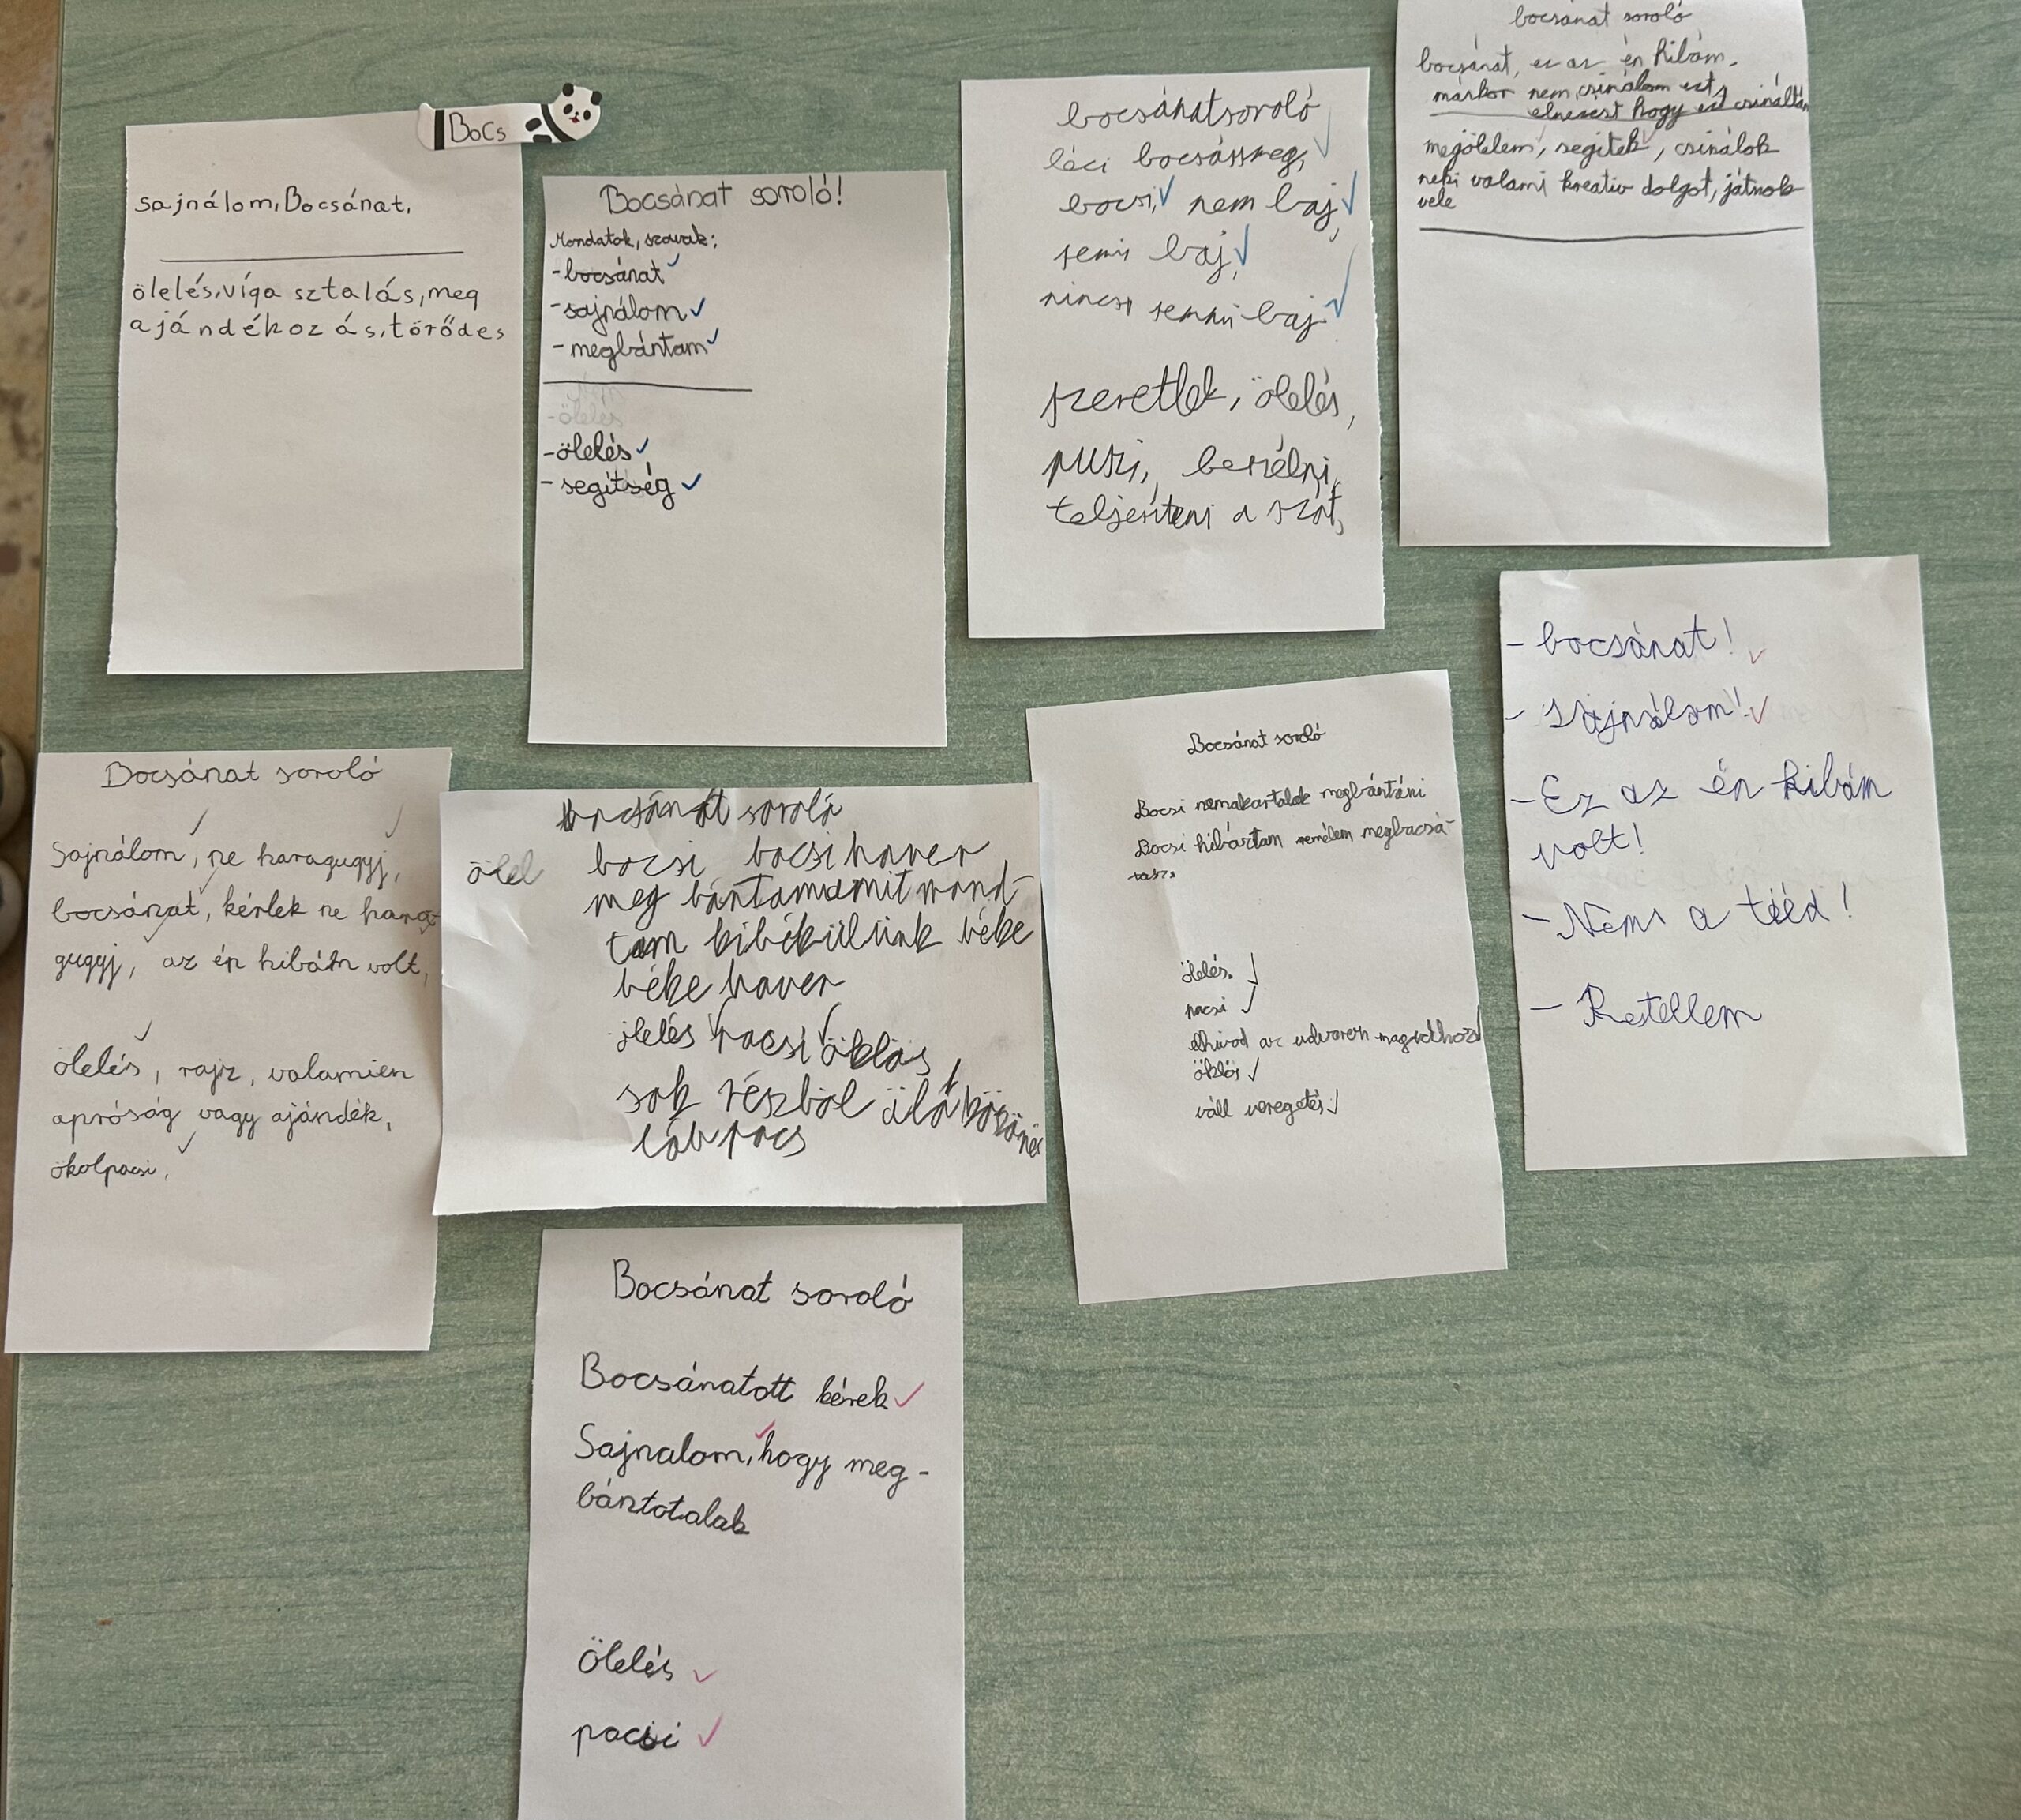 BoCs
sajnálom, Bocsánat,
ölelés, víga sztalás, meg
ajándékozás, törődes
Bocsánat soroló!
Mondatok, szavak:
- bocsánat
- sajnálom
- megbántam
- ölelés
- ölelés
- segítség
bocsánatsoroló
léci bocsássmeg,
bocsi, nem baj,
semi baj,
nincs semmi baj
szeretlek, ölelés,
puszi, beszélni,
teljesíteni a szót,
bocsánat soroló
bocsánat, ez az én hibám.
máskor nem csinálom ezt,
elnézést hogy ezt csináltam
megölelem, segitek, csinálok
neki valami kreativ dolgot, játszok
vele
- bocsánat!
- Sajnálom!
- Ez az én hibám
volt!
- Nem a tééd!
- Restellem
Bocsánat soroló
Sajnálom, ne haragugyj,
bocsánat, kérlek ne hara-
gugyj, az én hibám volt,
ölelés, rajz, valamien
apróság vagy ajándék,
ökolpacsi,
bocsánat soroló
ölel
bocsi bocsi haver
meg bántam amit mond-
tam kibékülünk béke
béke haver
ölelés pacsi öklös
sok részböl áló köszönés
láb pacs
Bocsánat soroló
Bocsi nemakartalak megbántáni
Bocsi hibáztam remélem megbocsá-
tasz.
ölelés.
pacsi
elhivod az udvaron magadhoz
öklös
váll veregetés
Bocsánat soroló
Bocsánatott kérek
Sajnalom, hogy meg-
bántotalak
Ölelés
pacsi